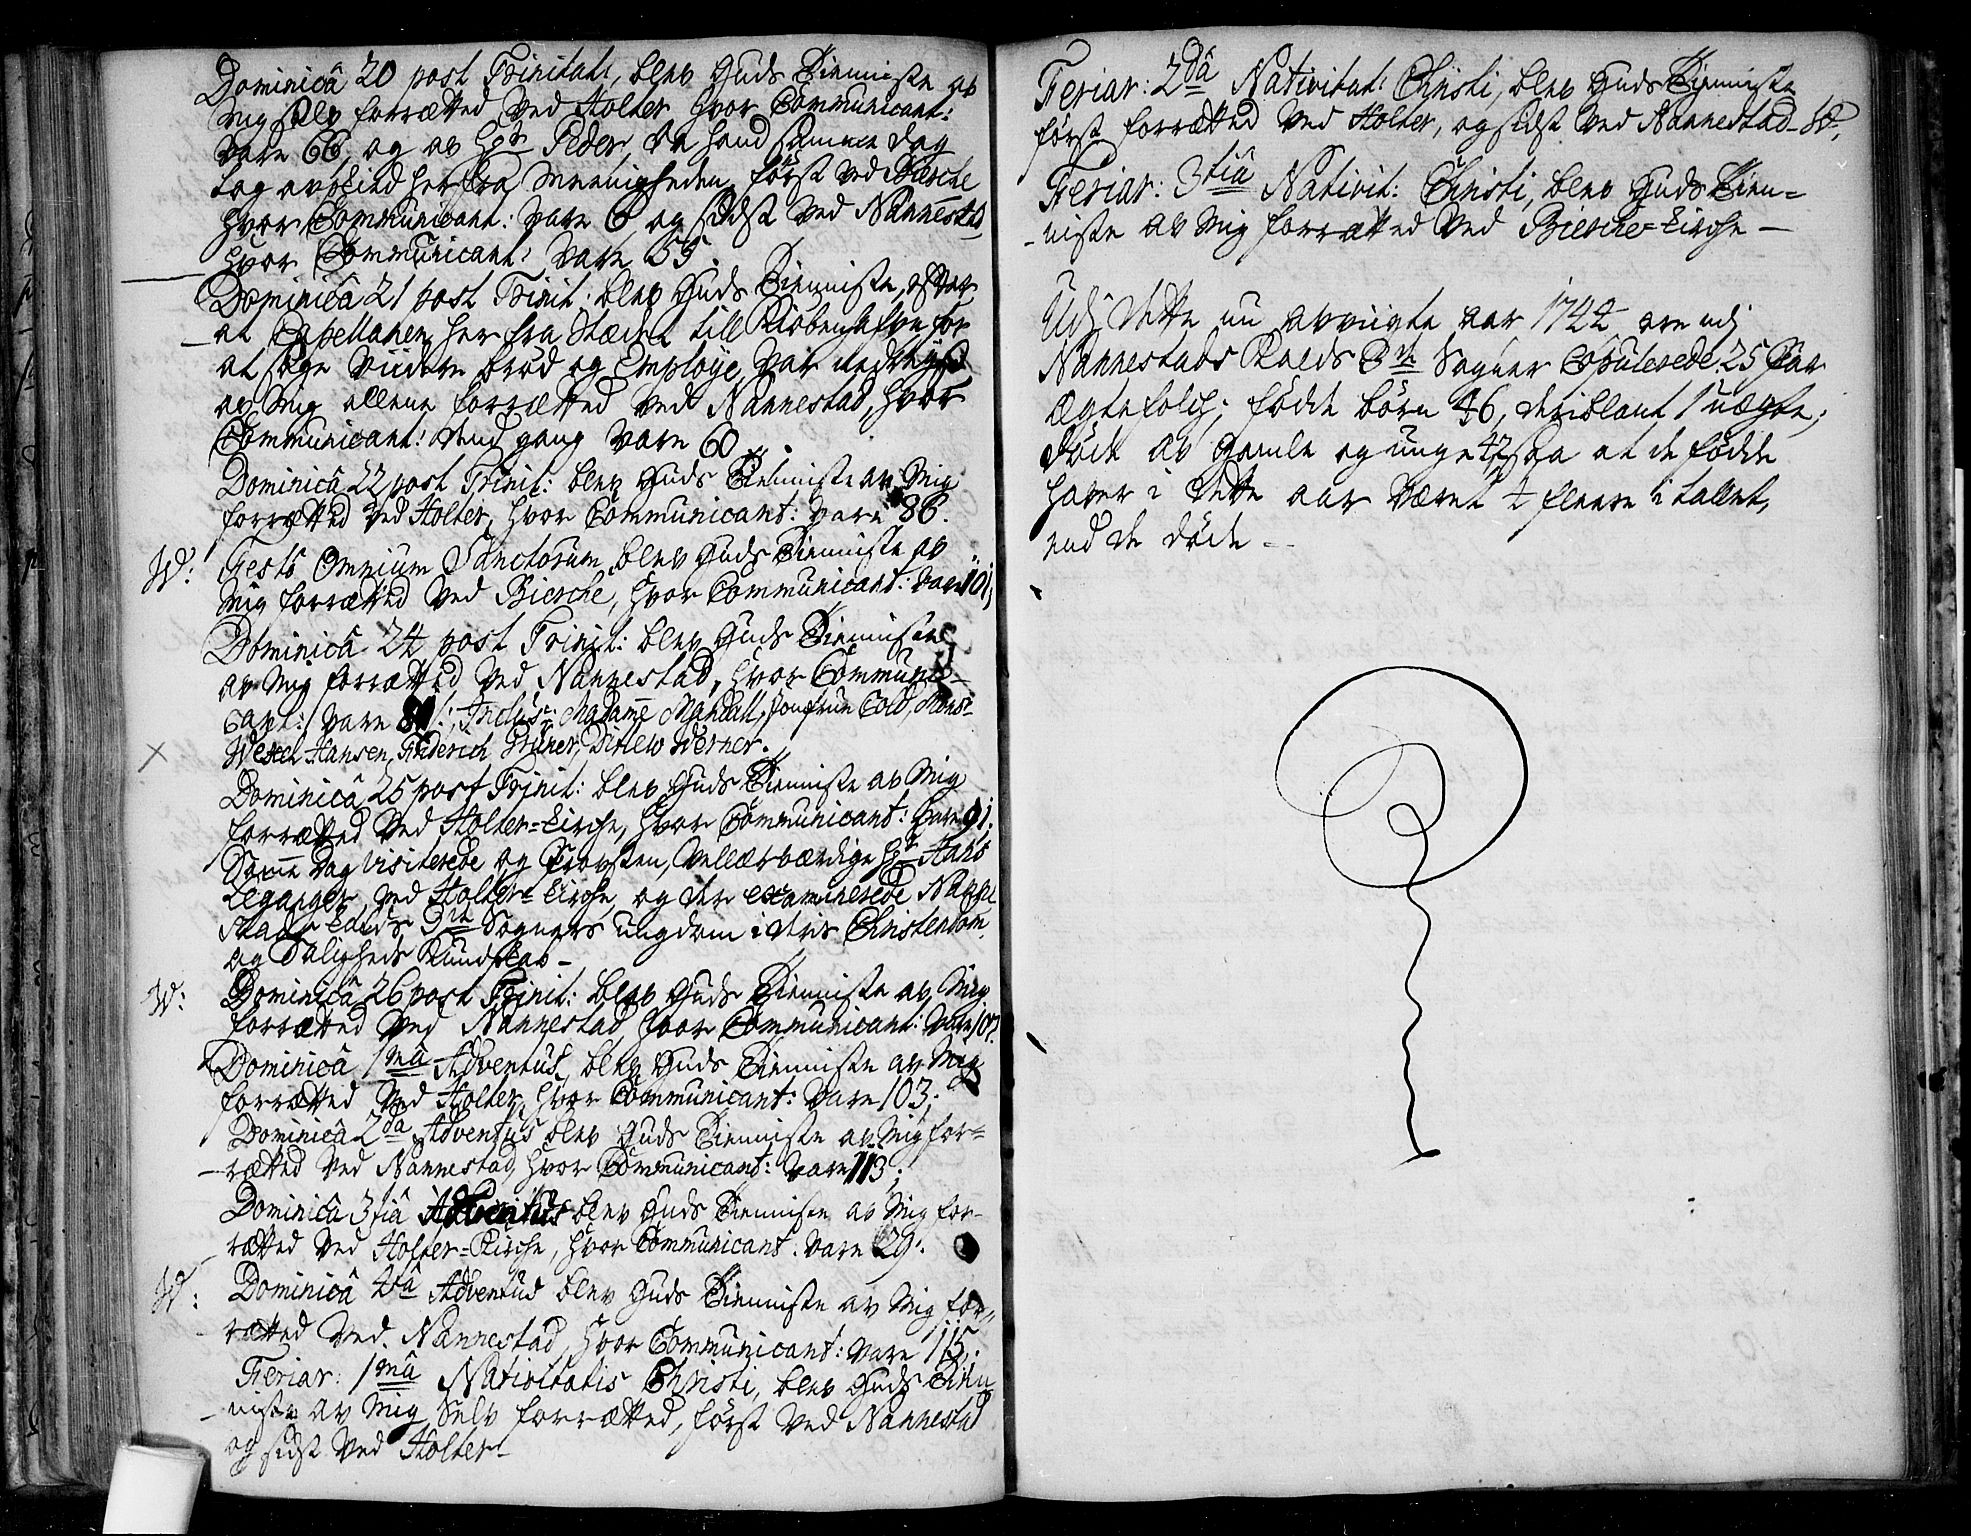 Dominicâ 20 post Trinitat:, blev Guds Tienniste av
Mig selv forrætted ved Holter hvor Communicant:
vare 66, og av Hr: Peder, da hand samme dag
tog avskied her fra Meenigheden, først ved Biercke
hvor Communicant: vare 6, og sidst ved Nannestad,
hvor Communicant: vare 55.
Dominicâ 21 post Trinit: blev Guds Tienniste, efter
at Capellanen her fra Stædet till Kiøbenhafn for
at søge viidere brød og Employe, var nedreyst
av Mig allene forrætted ved Nannestad, hvor
Communicant: dend gang vare 60.
Dominicâ 22 post Trinit: blev Guds Tienniste av Mig
forrætted ved Holter, hvor Communicant: vare 86.
W: Festo Omnium Sanctorum blev Guds Tienniste av
Mig forrætted ved Biercke, hvor Communicant: vare 101,
Dominicâ 24 post Trinit: blev Guds Tienniste
av Mig forrætted ved Nannestad, hvor Communi-
cant: vare /: Inclus: Madame Mandall, Jomfrue Cold, Mons:
Wexel Hansen, Friderich Grüner, Ditlew Werner.
Dominicâ 25 post Trinit: blev Guds Tienniste av Mig
forrætted ved Holter-Kirche, hvor Communicant: vare 91;
Samme dag visiterede og Provsten, Vellærværdige Hr: Hans
Leganger, ved Holter-Kirche, og der examinerede Nanne-
stads Kalds 3de Sogners ungdom i deris Christendom
og Saligheds Kundskab -
W: Dominicâ 26 post Trinit: blev Guds Tienniste av Mig
forrætted ved Nannestad, hvor Communicant: vare 107.
Dominicâ 1mâ Adventus, blev Guds Tienniste av Mig
forrætted ved Holter, hvor Communicant: vare 103;
Dominicâ 2dâ Adventus blev Guds Tienniste av Mig for-
rætted ved Nannestad, hvor Communicant: vare 113;
Dominicâ 3tiâ Adventus blev Guds Tienniste av Mig for-
rætted ved Holter-Kirche, hvor Communicant: vare 29.
W: Dominicâ 4tâ Adventus blev Guds Tienniste av Mig for-
rætted ved Nannestad, hvor Communicant: vare 115.
Feriar: 1mâ Nativitatis Christi, blev Guds Tien-
niste av Mig Selv forrætted, først ved Nannestad
og sidst ved Holter-
Feriar: 2dâ Nativitat: Christi, blev Guds Tienniste
først forrætted ved Holter, og sidst ved Nannestad-
Feriar: 3tiâ Nativit: Christi, blev Guds Tien-
niste av Mig forrætted ved Biercke-Kirche -
Udj dette nu avvigte aar 1744 ere udj
Nannestads Kalds 3de Sogner Copulerede 25 Par
Ægtefolch; fødde børn 46, deriblant 1 uægte;
døde av gamle og unge 42, saa at de fødde
haver i dette aar været 4 fleere i tallet,
end de døde -